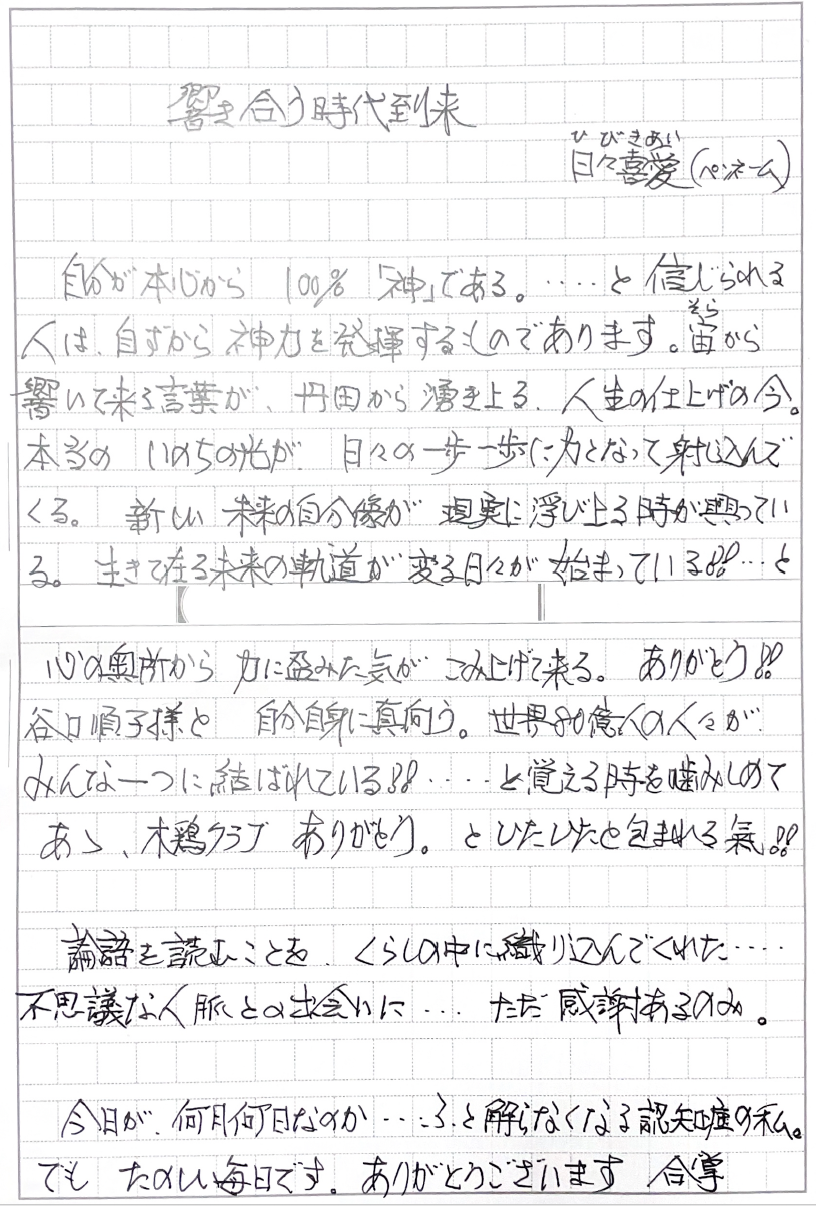 響き合う時代到来
ひびきあい
日々喜愛(ペンネーム)
自分が本心から 100%「神」である。‥‥と 信じられる
人は、自ずから 神力を発揮するものであります。宙から
そら
響いて来る言葉が、丹田から 湧き上る、人生の仕上げの今。
本当の いのちの光が 日々の一歩一歩に力となって射し込んで
くる。 新しい 未来の自分像が 現実に浮び上る時が興ってい
る。 生きて在る未来の軌道が 変る日々が 始まっている!!…と
心の奥所から 力に盈みた気が こみ上げて来る。 ありがとう!!
谷口順子様と 自分自身に真向う。世界80億人の人々が
みんな一つに結ばれている!!‥‥‥と覚える時を噛みしめて
あゝ、木鶏クラブ ありがとう。とひたひたと包まれる氣!!
論語を読むことを、くらしの中に織り込んでくれた‥‥
不思議な人脈との出会いに… ただ 感謝あるのみ。
今日が、何月何日なのか…ふと解らなくなる認知症の私。
でも たのしい毎日です。ありがとうございます 合掌